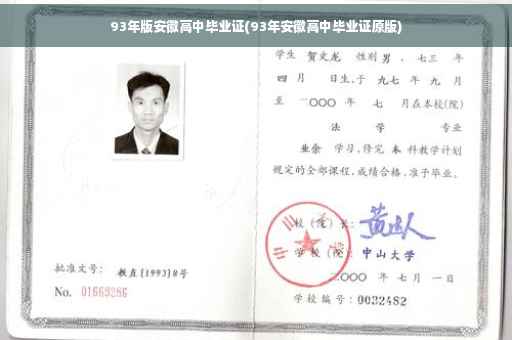 93年版安徽高中毕业证(93年安徽高中毕业证原版)
学生 贺文龙 性别 男 、 七三 年
四 月 日生,于 九七 年 九 月
至 二〇〇〇 年 七 月在本校(院)
法 学 专业
业余 学习,修完 本 科教学计划
规定的全部课程,成绩合格,准予毕业。
校(院)长:
学校(院): 中山大学
二〇〇〇 年 七 月 一 日
学校编号: 0032482
批准文号: 教直(1993)8号
No. 01669286